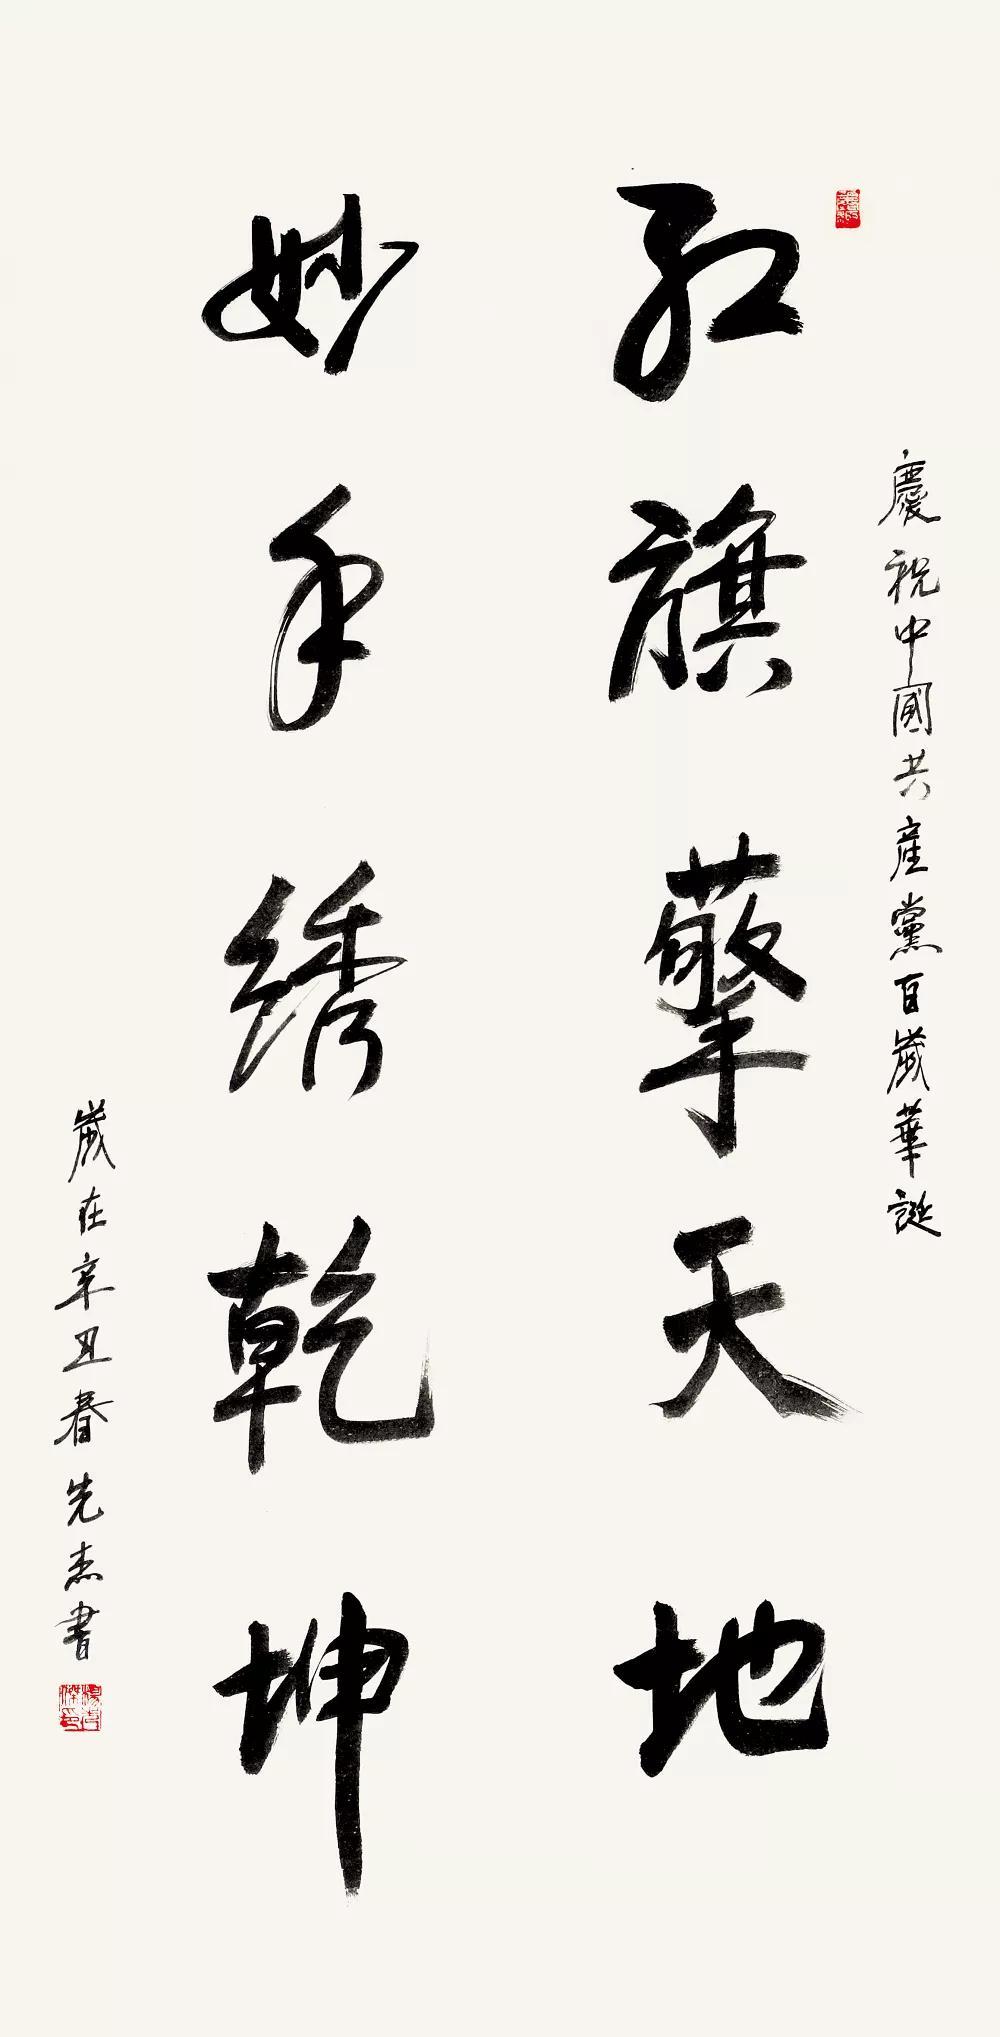 慶祝中國共産黨百歲華誕
红旗擎天地
妙手绣乾坤
歲在辛丑春先杰書